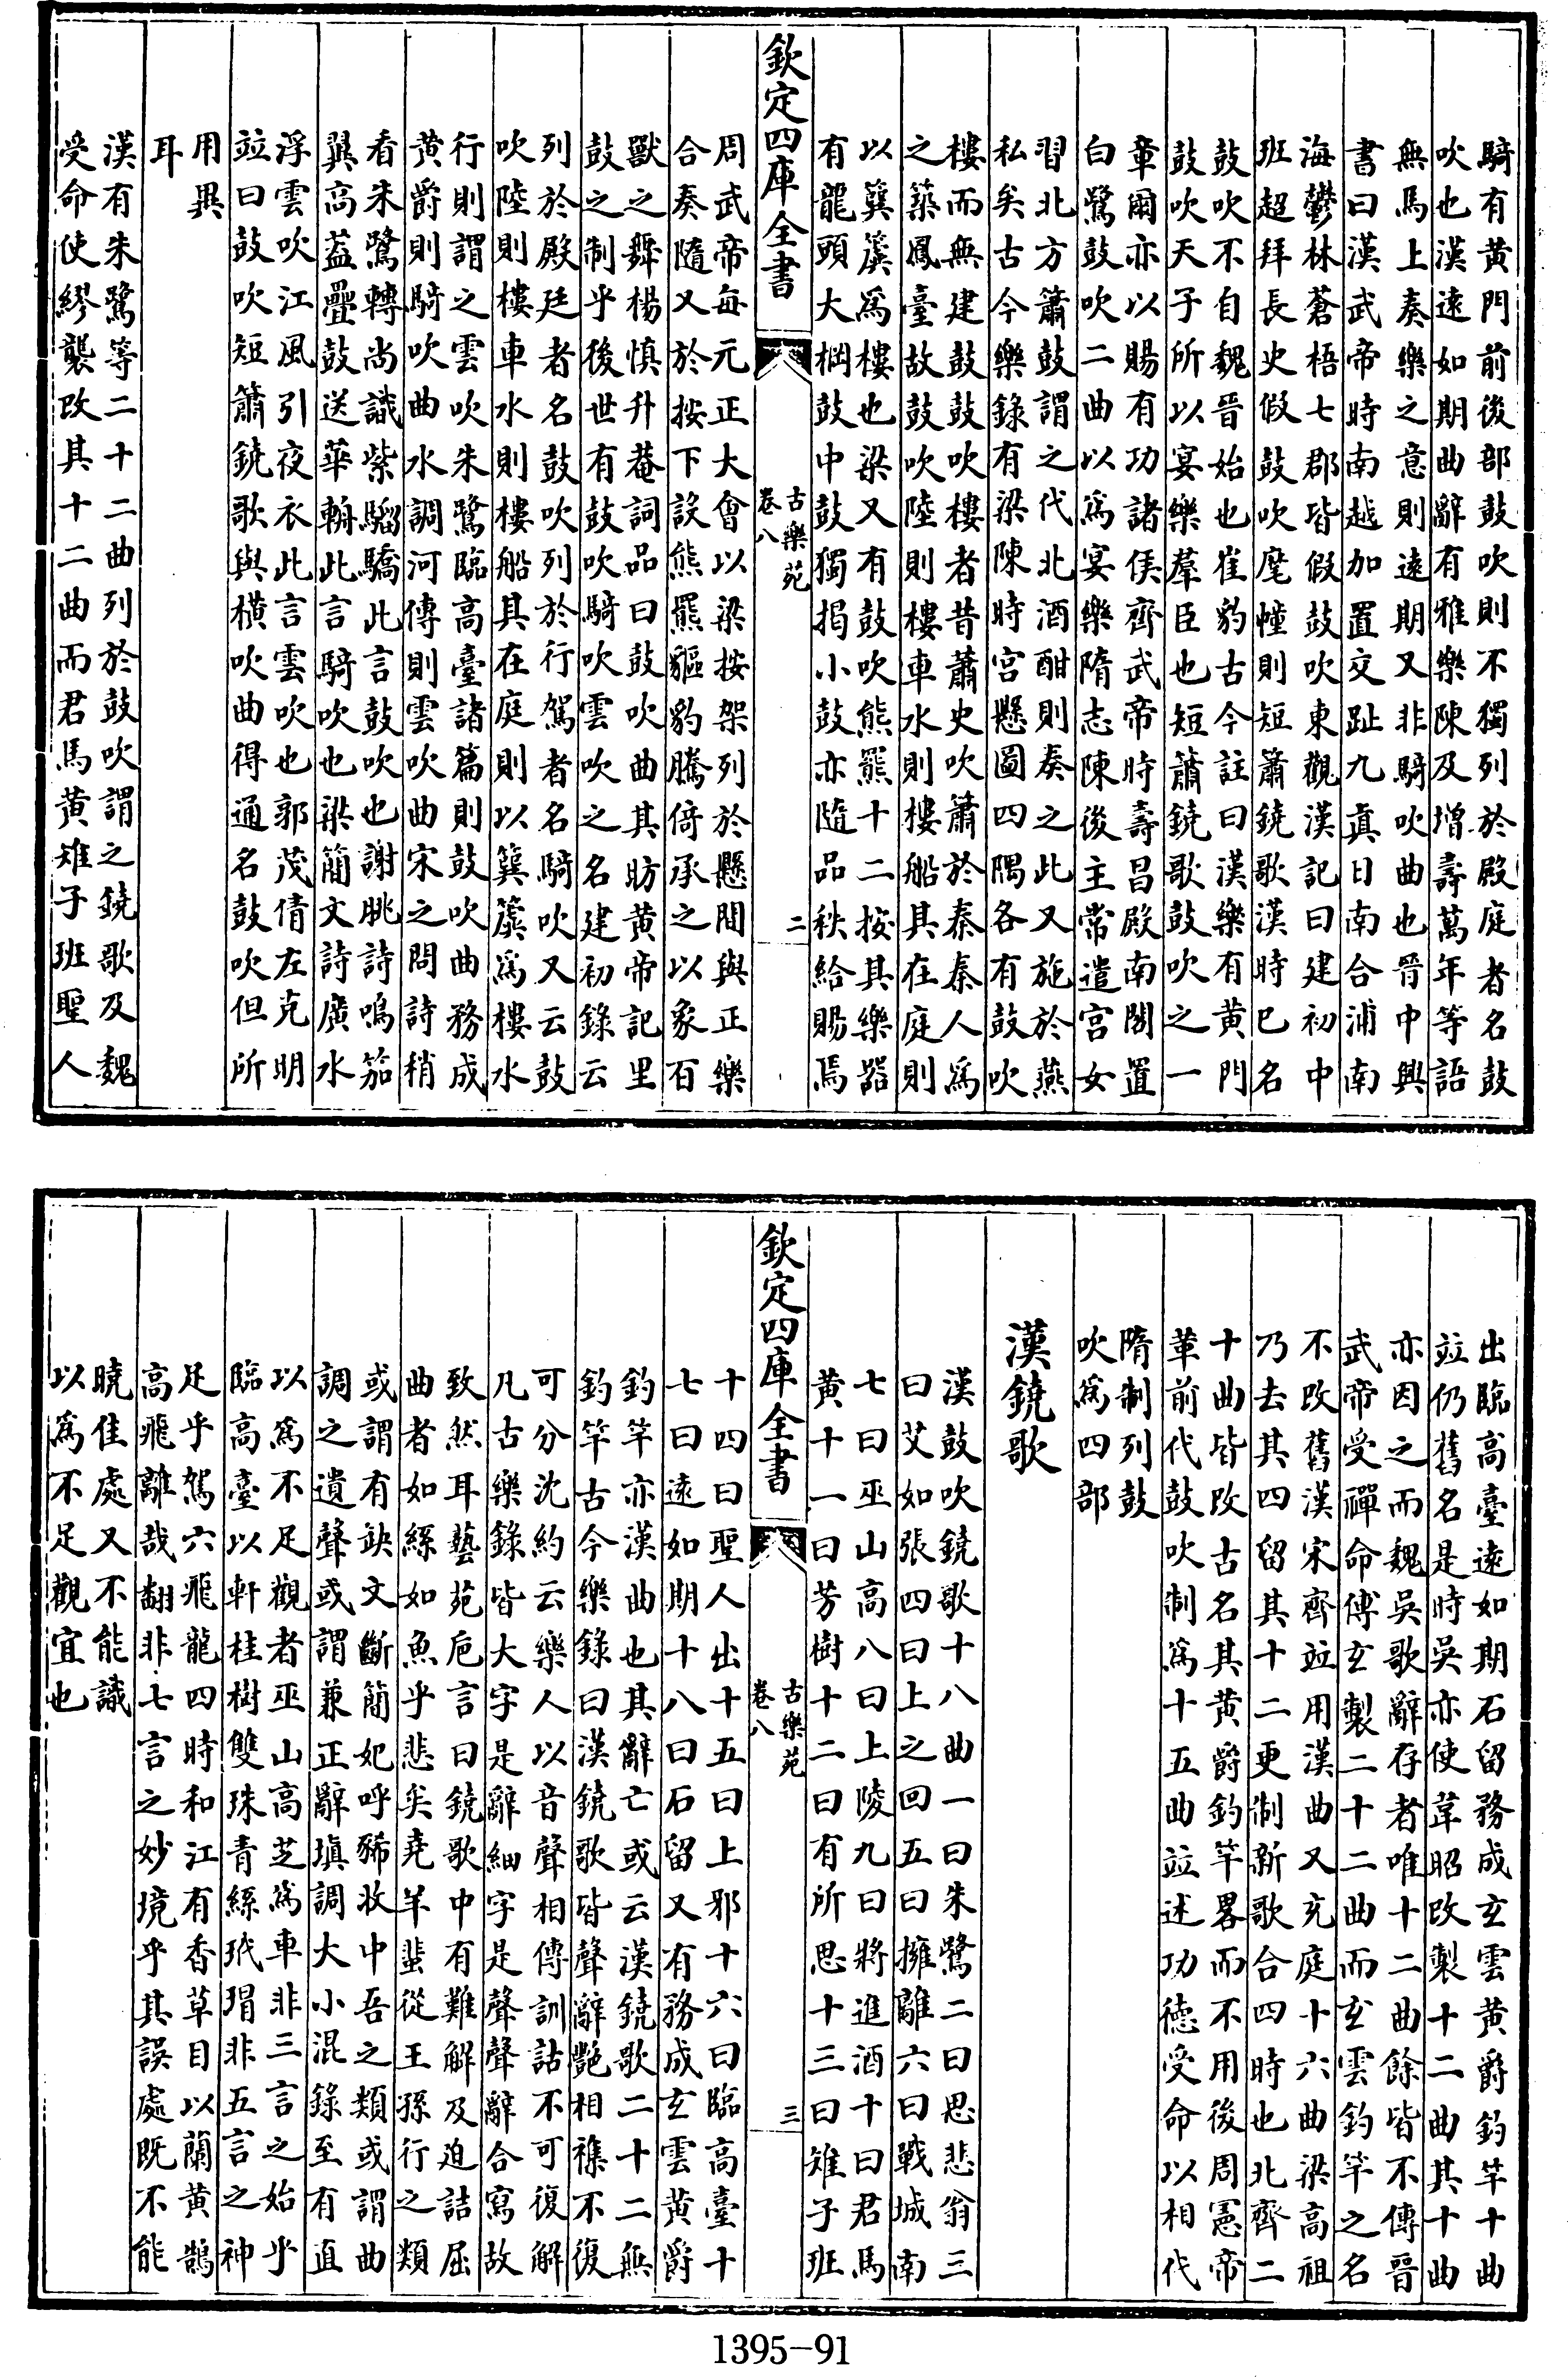 騎有黃門前後部鼓吹則不獨列於殿庭者名鼓
吹也漢遠如期曲辭有雅樂陳及增壽萬年等語
無馬上奏樂之意則遠期又非騎吹曲也晉中興
書曰漢武帝時南越加置交趾九真日南合浦南
海鬱林蒼梧七郡皆假鼓吹東觀漢記曰建初中
班超拜長史假鼓吹麾幢則短簫鐃歌漢時已名
鼓吹不自魏晉始也崔豹古今註曰漢樂有黃門
鼓吹天子所以宴樂羣臣也短簫鐃歌鼓吹之一
章爾亦以賜有功諸侯齊武帝時壽昌殿南閣置
白鷺鼓吹二曲以為宴樂隋志陳後主常遣宮女
習北方簫鼓謂之代北酒酣則奏之此又施於燕
私矣古今樂錄有梁陳時宮懸圖四隅各有鼓吹
樓而無建鼓鼓吹樓者昔蕭史吹簫於秦秦人為
之築鳳臺故鼓吹陸則樓車水則樓船其在庭則
以簨簴為樓也梁又有鼓吹熊羆十二按其樂器
有龍頭大棡鼓中鼓獨揭小鼓亦隨品秩給賜焉
欽定四庫全書
古樂苑
卷八
二
周武帝每元正大會以梁按架列於懸間與正樂
合奏隨又於按下設熊羆貙豹騰倚承之以象百
獸之舞楊慎升菴詞品曰鼓吹曲其昉黃帝記里
鼓之制乎後世有鼓吹騎吹雲吹之名建初錄云
列於殿廷者名鼓吹列於行駕者名騎吹又云鼓
吹陸則樓車水則樓船其在庭則以簨簴為樓水
行則謂之雲吹朱鷺臨高臺諸篇則鼓吹曲務成
黃爵則騎吹曲水調河傳則雲吹曲宋之問詩稍
看朱鷺轉尚識紫騮驕此言鼓吹也謝眺詩鳴笳
翼高葢疊鼓送華輈此言騎吹也梁簡文詩廣水
浮雲吹江風引夜衣此言雲吹也郭茂倩左克明
竝曰鼓吹短簫鐃歌與橫吹曲得通名鼓吹但所
用異
耳
漢有朱鷺等二十二曲列於鼓吹謂之鐃歌及魏
受命使繆襲改其十二曲而君馬黃雉子班聖人
出臨高臺遠如期石留務成玄雲黃爵釣竿十曲
竝仍舊名是時吳亦使韋昭改製十二曲其十曲
亦因之而魏吳歌辭存者唯十二曲餘皆不傳晉
武帝受禪命傅玄製二十二曲而玄雲釣竿之名
不改舊漢宋齊竝用漢曲又充庭十六曲梁高祖
乃去其四留其十二更制新歌合四時也北齊二
十曲皆改古名其黃爵釣竿畧而不用後周憲帝
革前代鼓吹制為十五曲竝述功德受命以相代
隋制列鼓
吹為四部
漢鐃歌
漢鼓吹鐃歌十八曲一曰朱鷺二曰思悲翁三
曰艾如張四曰上之回五曰擁離六曰戰城南
七曰巫山高八曰上陵九曰將進酒十曰君馬
黃十一曰芳樹十二曰有所思十三曰雉子班
欽定四庫全書
古樂苑
卷八
三
十四曰聖人出十五曰上邪十六曰臨高臺十
七曰遠如期十八曰石留又有務成玄雲黃爵
釣竿亦漢曲也其辭亡或云漢鐃歌二十二無
釣竿古今樂錄曰漢鐃歌皆聲辭艷相襍不復
可分沈約云樂人以音聲相傳訓詁不可復解
凡古樂錄皆大字是辭細字是聲聲辭合寫故
致然耳藝苑巵言曰鐃歌中有難解及迫詰屈
曲者如絲如魚乎悲矣堯羊蜚從王孫行之類
或謂有缺文斷簡妃呼豨收中吾之類或謂曲
調之遺聲或謂兼正辭填調大小混錄至有直
以為不足觀者巫山高芝為車非三言之始乎
臨高臺以軒桂樹雙珠青絲玳瑁非五言之神
足乎駕六飛龍四時和江有香草目以蘭黃鵠
高飛離哉翻非七言之妙境乎其誤處既不能
曉佳處又不能識
以為不足觀宜也
1395-91